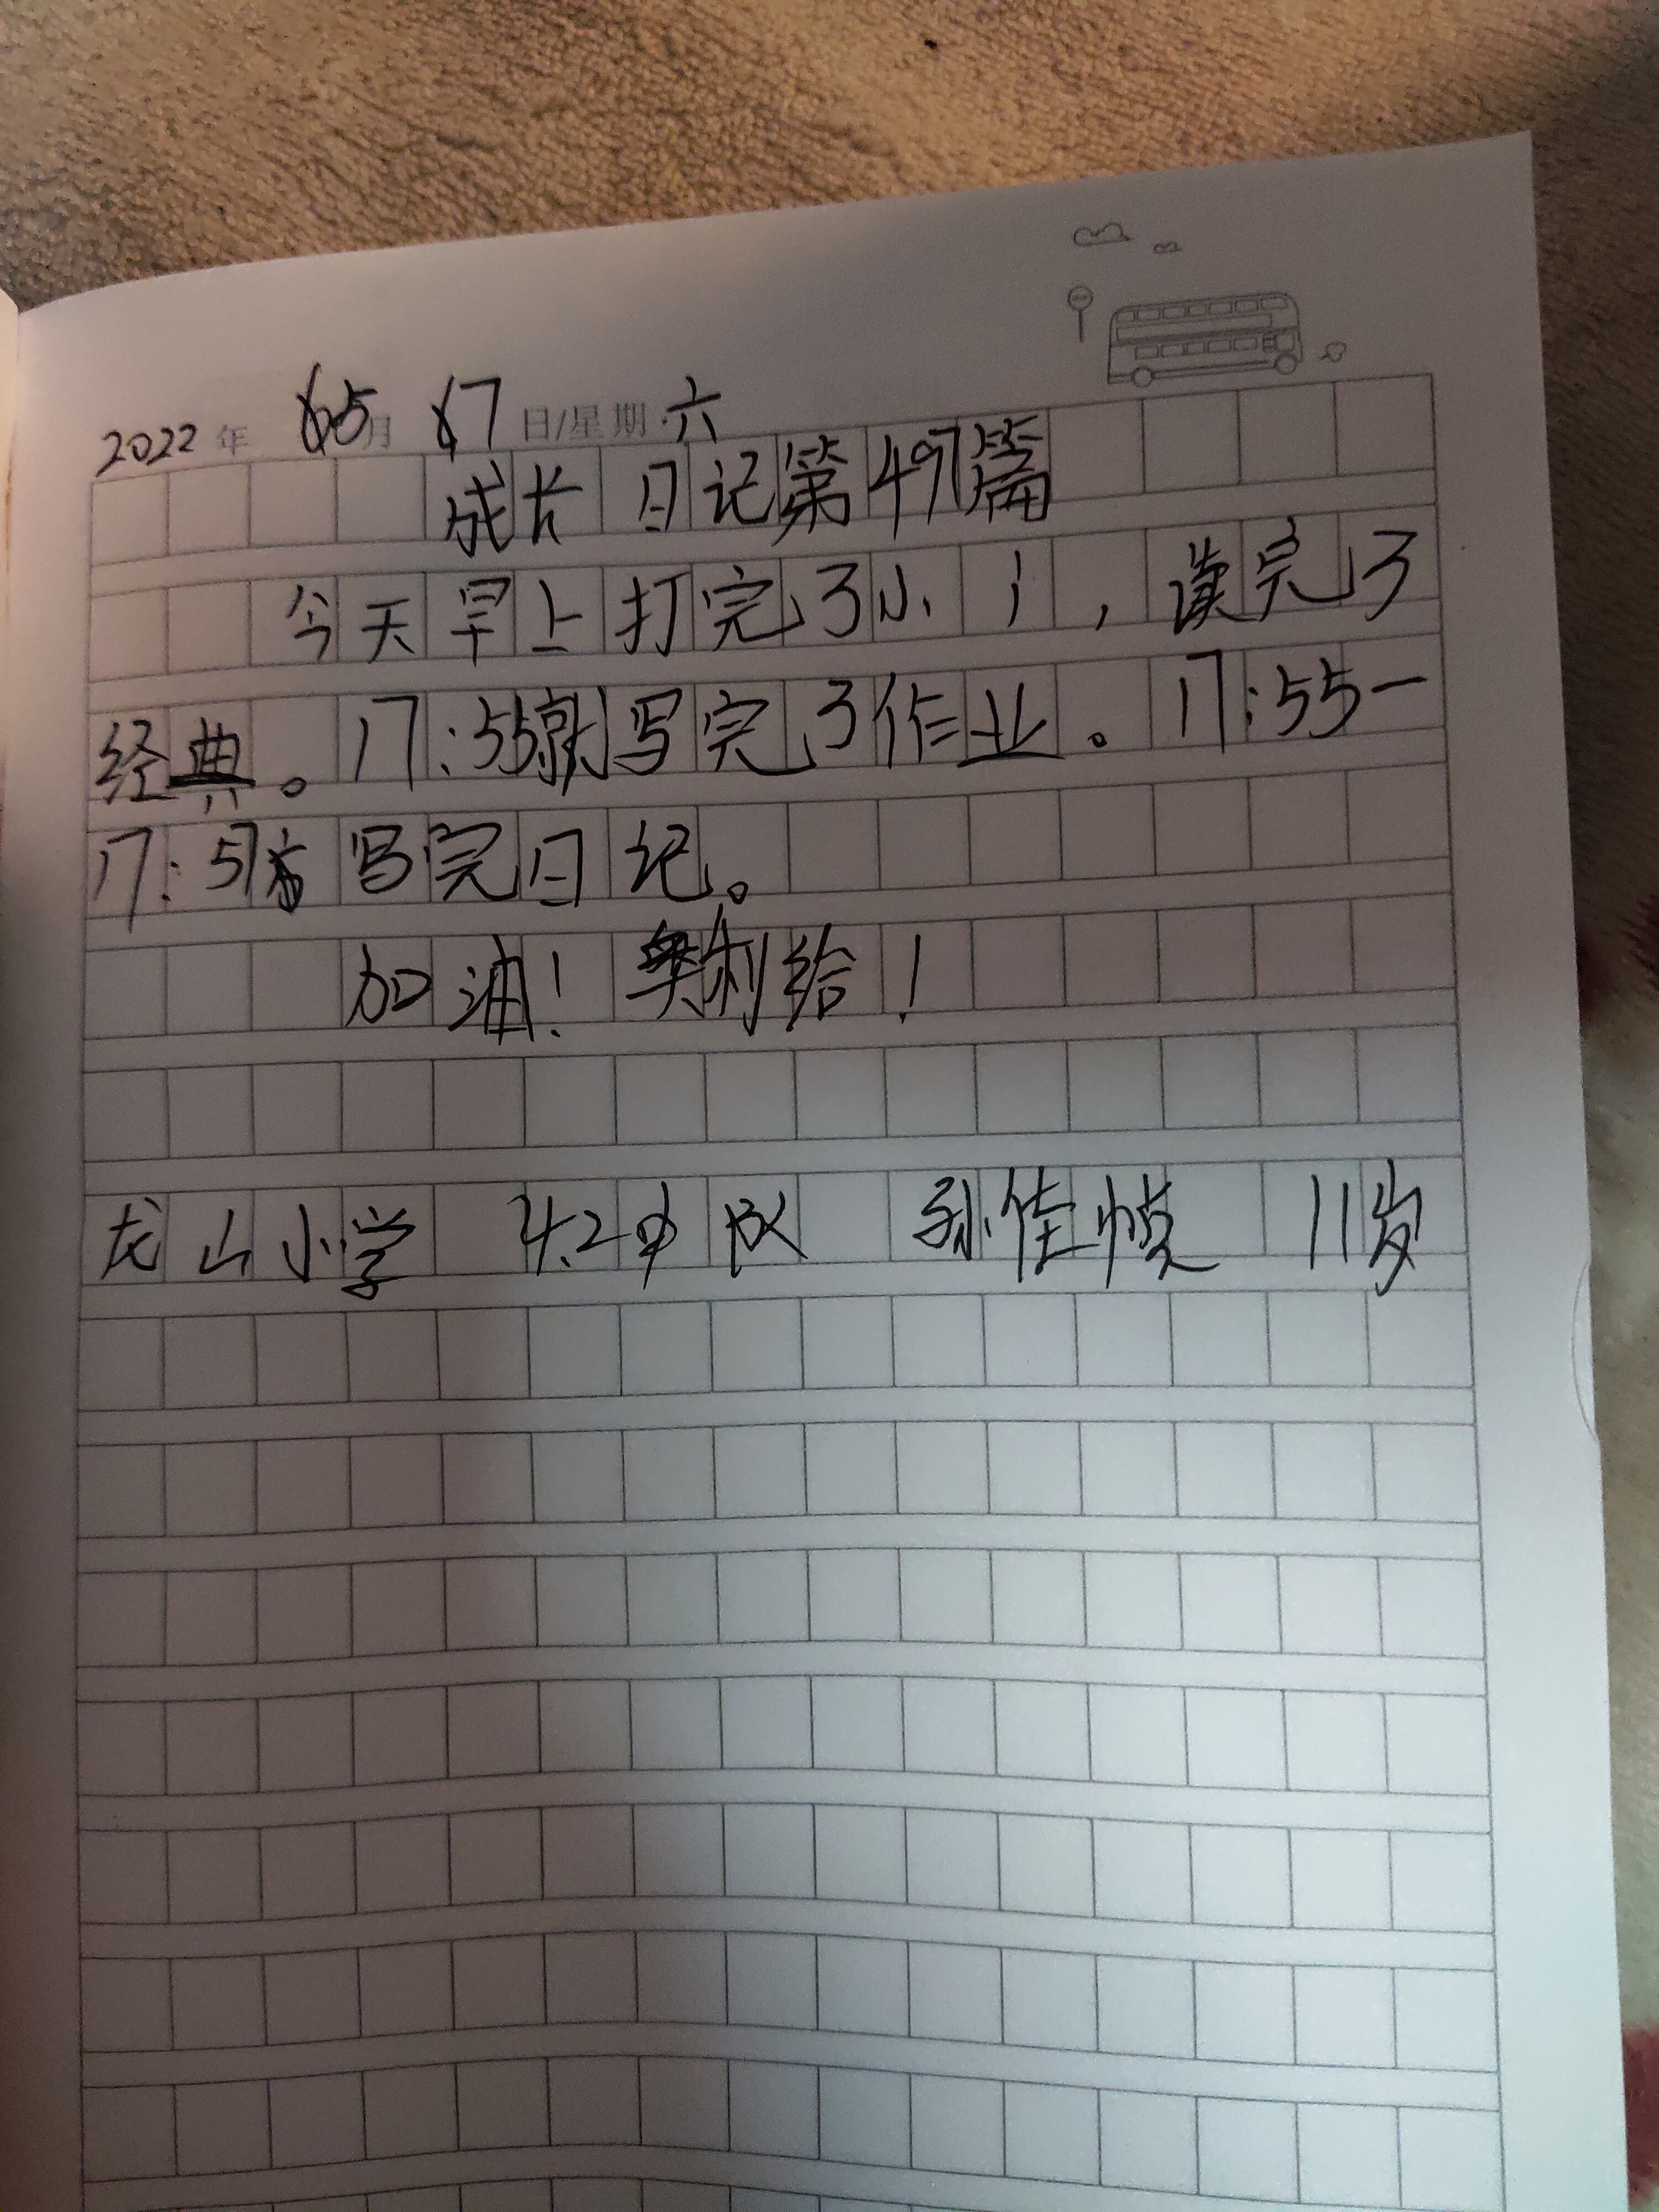 2022年 5月 7日/星期六
成长日记第497篇
今天早上打完了小卡,读完了
经典。17:55就写完了作业。17:55一
17:57写完日记。
加油!奥利给!
龙山小学 4.2中队 孙佳 11岁